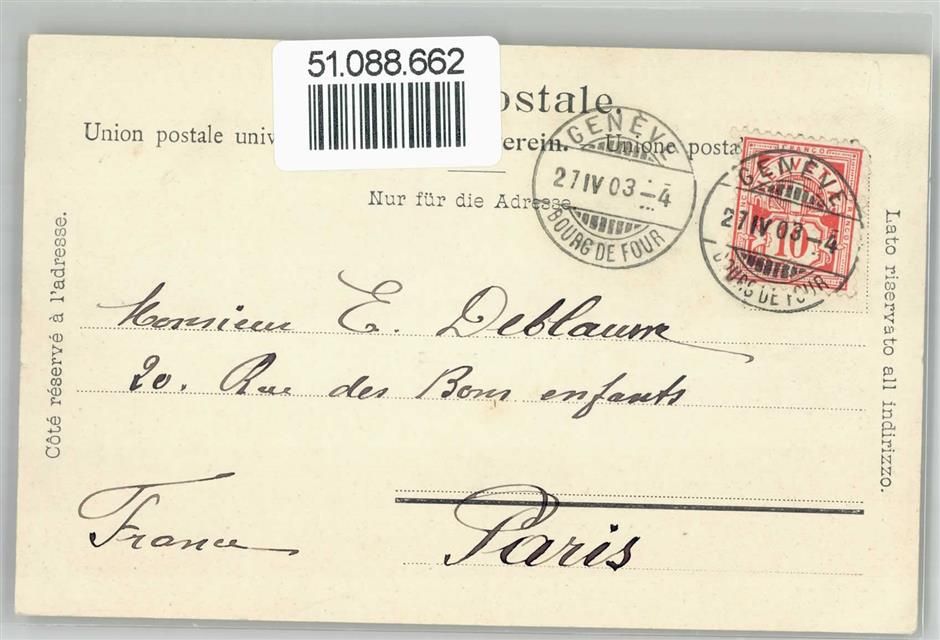 51.088.662
ostale.
Union postale univ erein. Unione posta
Nur für die Adresse
Côté réservé à l'adresse.
Lato riservato all indirizzo.
GENÈVE
27 IV 03 -4
BOURG DE FOUR
FRANCO
10
GENÈVE
27 IV 03 -4
BOURG DE FOUR
Monsieur E. Deblauwe
20. Rue des Bons enfants
Paris
France